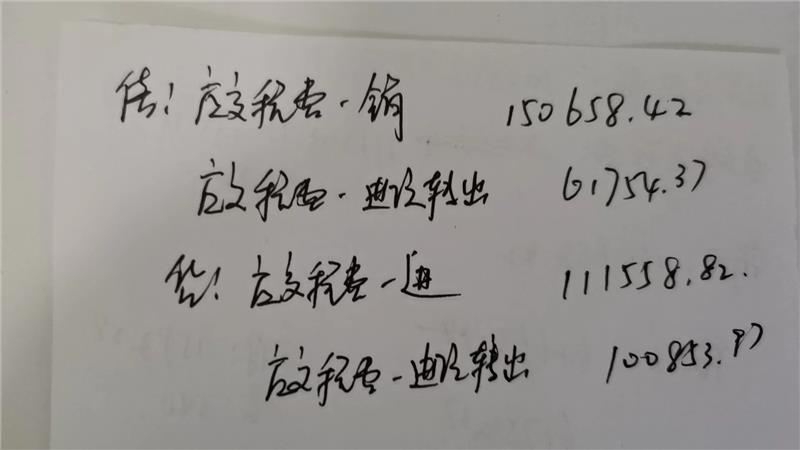 借：应交税费-销 150658.42
应交税费-进项转出 61754.37
贷：应交税费-进 111558.82.
应交税费-进项转出 100853.97